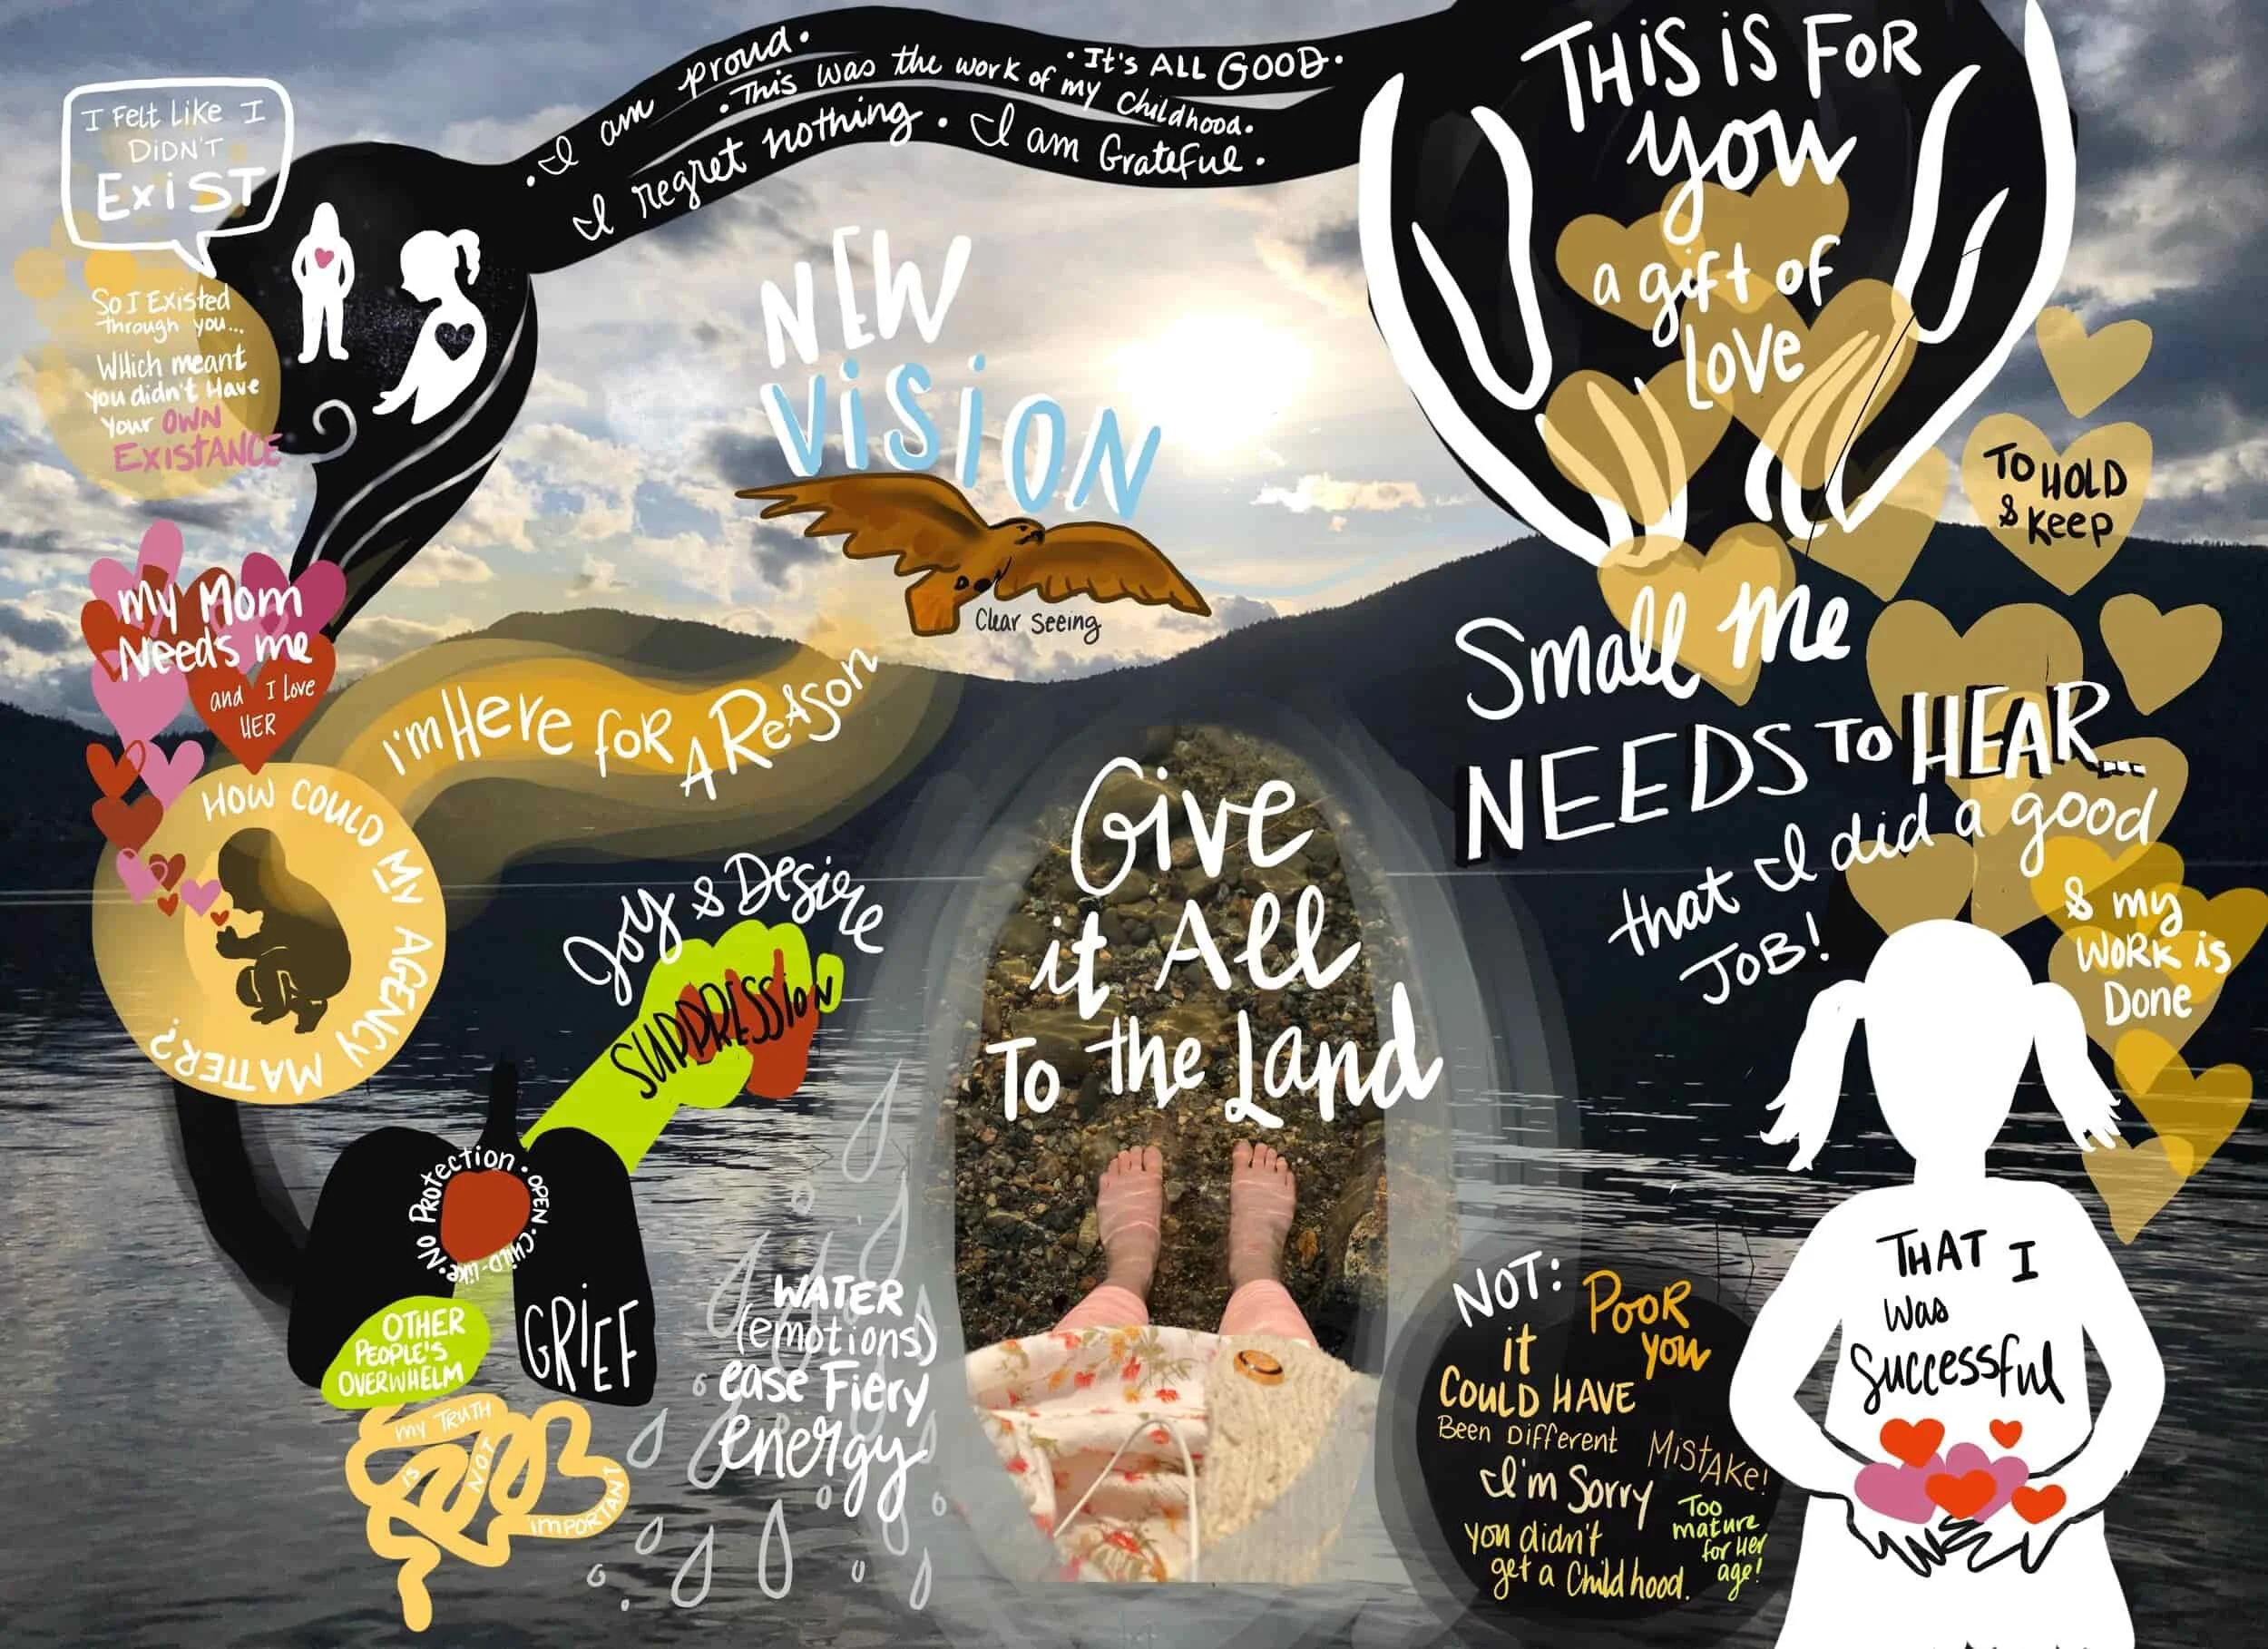 • I am proud.
• This was the work of my childhood.
• It's ALL GOOD.
I regret nothing. • I am Grateful.
I Felt Like I
DiDN'T
ExiST
So I Existed
through you...
WHich meant
you didn't Have
Your OWN
ExistANCE
My Mom
Needs me
and I love
HER
I'm Here foR A ReAson
HOW COULD MY AGENCY MATTER?
NEW
ViSiON
Clear Seeing
THiS iS FoR
you
a gift of
Love
To HOLD
& Keep
Small Me
NEEDS To HEAR...
that I did a good
JOB!
& my
WORK is
Done
THAT I
Was
Successful
Give
it All
To the Land
Joy & Desire
SUPPRESSION
No Protection • OPEN • CHiLD-Like •
OTHER
PEOPLE'S
OVERWHELM
GRIEF
MY TRUTH
iS
NOT
iMPORTANT
WATER
(emotions)
ease Fiery
energy
NOT:
PooR
you
it
COULD HAVE
Been Different
MistAke!
I'm Sorry
you didn't
get a Childhood.
Too
mature
for Her
age!